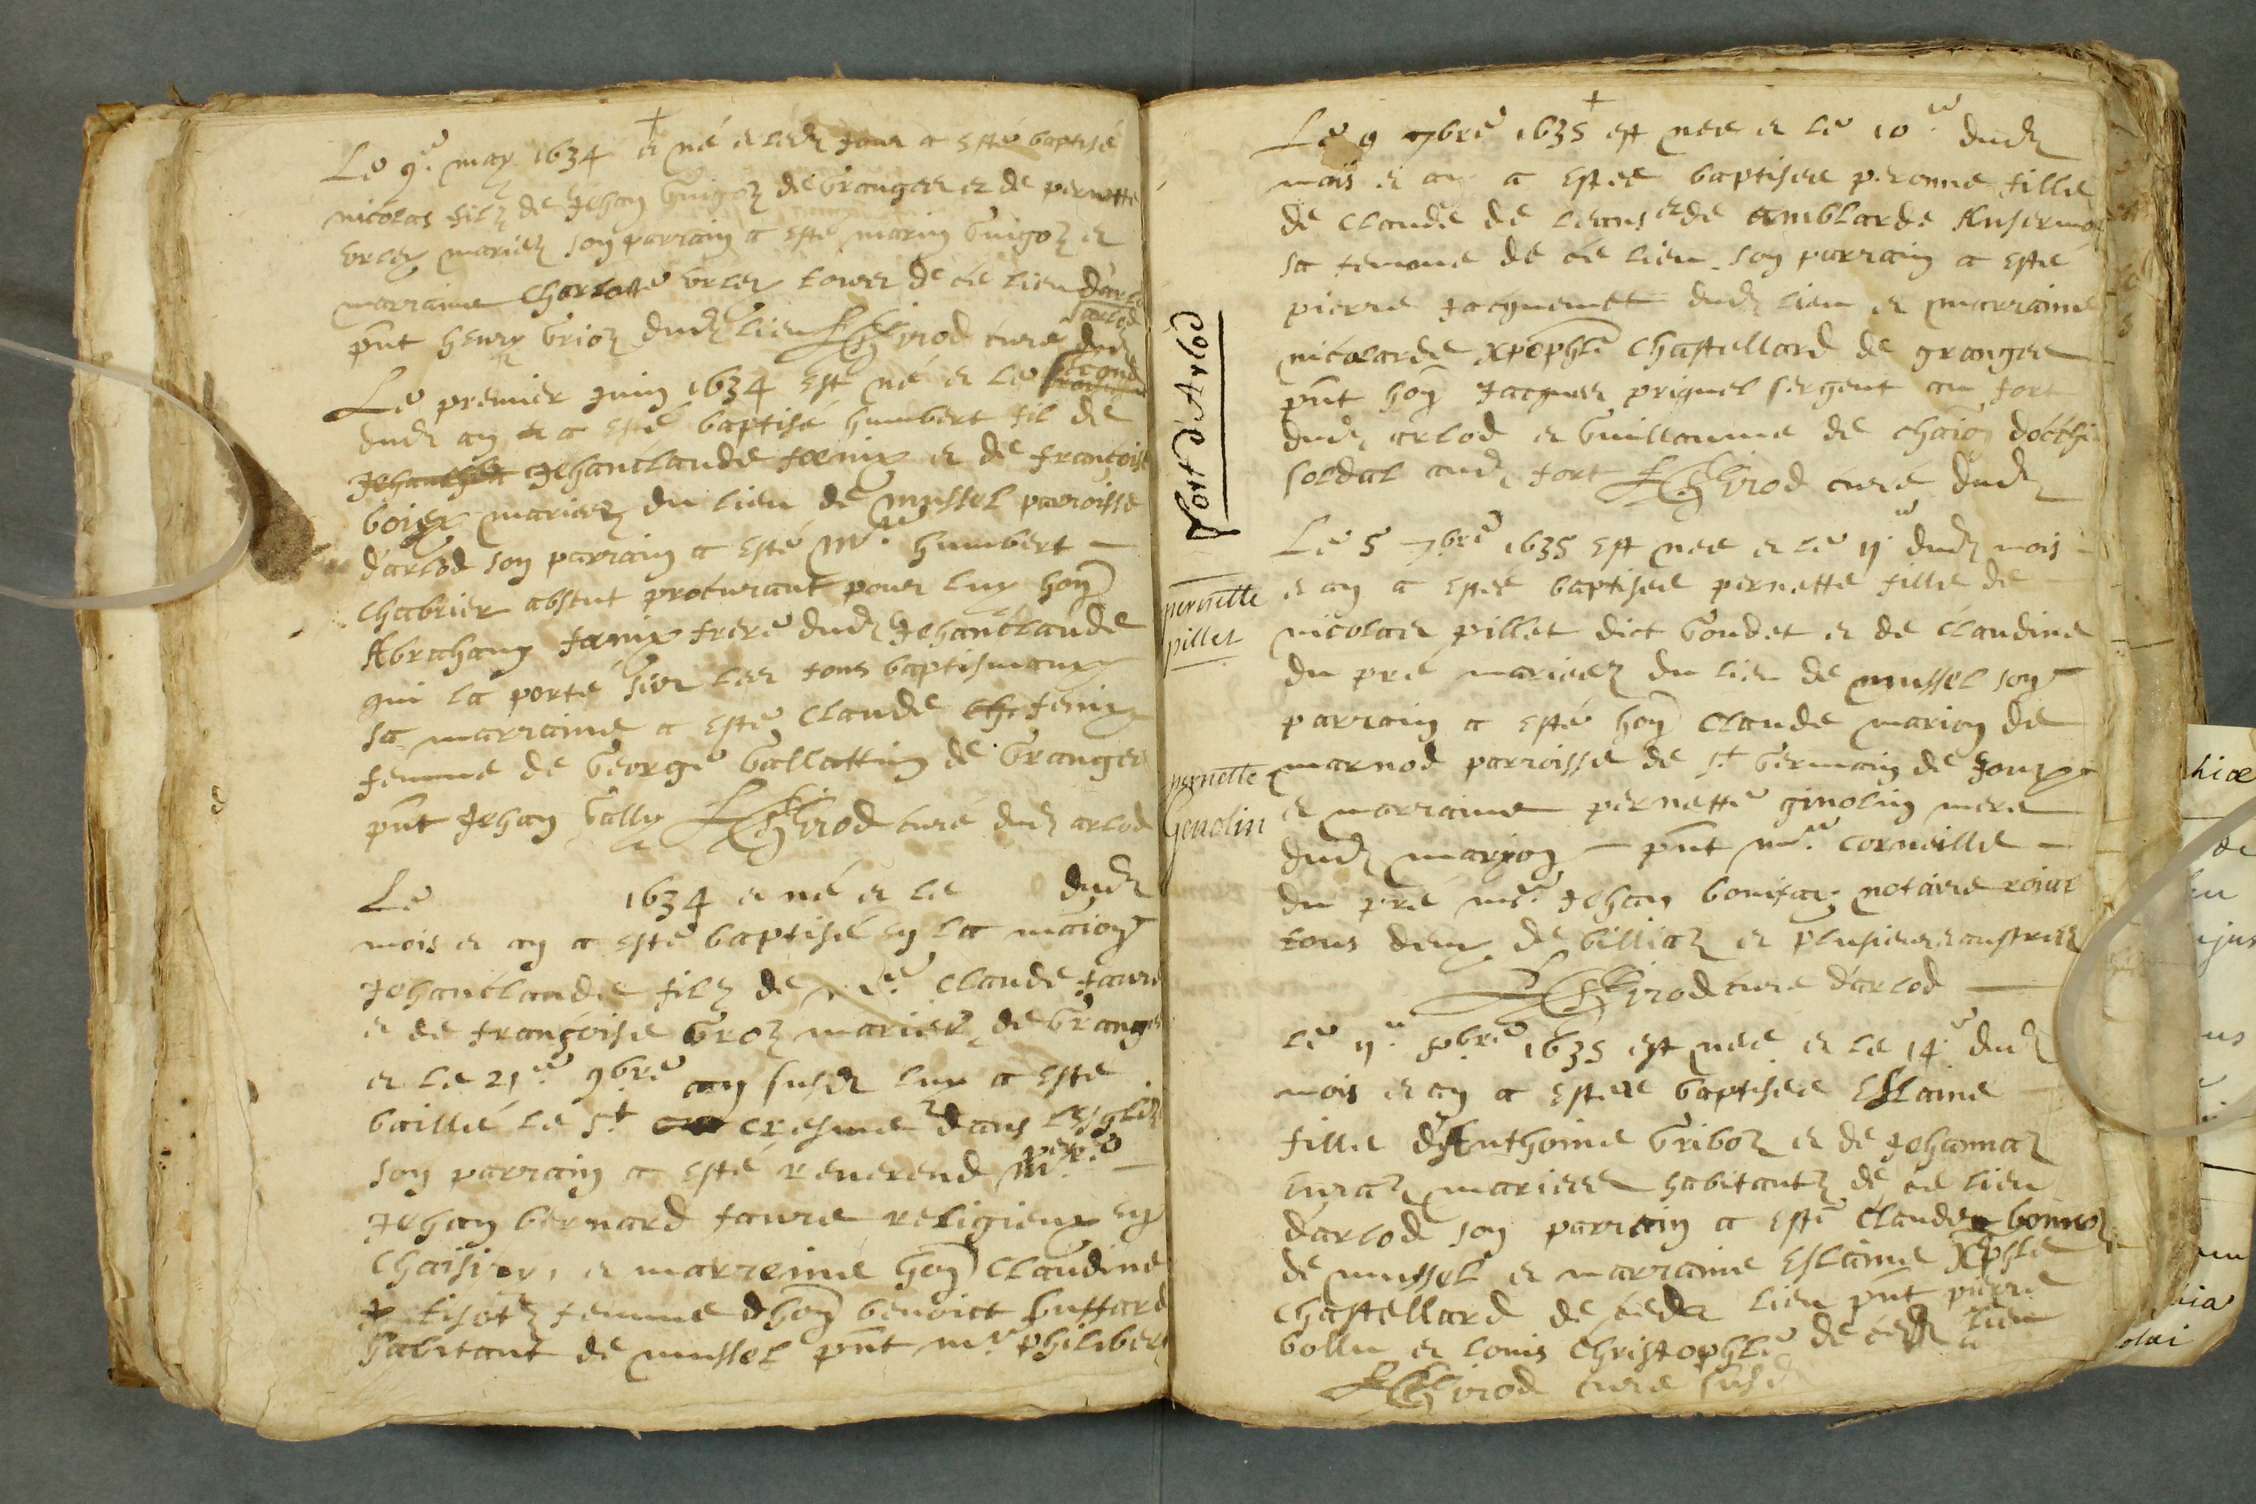 Le 9e may 1634 e né e ledz jour a esté baptisé
nicolas filz de Jehan Guigoz de Granges e de pernette
mariez son parrain a esté marin Guigoz e
marraine Charlotte tous de ce lieu darlod
pnt henry Grioz dudz lieu Girod curé dudz
Le premier juin 1634 est né e le second
dudz an a esté baptisé humbert fil de
Jehanclaude fornix e de françoise
boiex mariez du lieu de mussel parroisse
darlod son parrain a esté mre humbert
chabrier absent procurant pour luy hon
Abraham fornix frere dudz Jehanclaude
qui la porté sur les fons baptismaux
sa marraine a esté claude fenix
femme de George Gallattin de Granges
pnt Jehan Gally Girod curé dudz arlod
Le 1634 e né e le dudz
mois e an a esté baptisé en la maion
Jehanclaude filz de mre claude favre
e de françoise Groz mariez de Granges
e le 21e 9bre an susdz luy a esté
baillé le st cresme dans lesglize
son parrain a esté reverend pere
Jehan bernard favre religieux en
chaisiry, e marreine hon claudine
tisotz femme dhon benoict buffard
habitant de mussel pnt mre philibert
Le 9 7bre 1635 est nee e le 10e dudz
mois e an a estee baptisee peronne fille
de claude de leans e de amblarde Ansermoz
sa femme de ce lieu son parrain a esté
pierre Jacquemet dudz lieu e marraine
nicolarde xpophle chastellard de granges
pnt hon Jacques priquel sergent au fort
dudz arlod e Guillaume de
soldat audz fort Girod curé dudz
Fort d'Arlod
Le 5 7bre 1635 est nee e le 11e dudz mois
e an a estee baptisee pernette fille de
nicolas pillet dict Goudet e de claudine
du pré mariez du lieu de mussel son
parrain a esté hon claude marion de
marnod parroisse de st Germain de Joux
e marraine pernette ginolin mere
dudz marion pnt mre corneille
du pré mre Jehan bonifax notaire roial
tous deux de billiaz e plusieurs austres
Girod cure darlod
pernette
pillet
pernette
Genolin
Le 11e 8bre 1635 est nee e le 14e dudz
mois e an a estee baptisee Eslaine
fille dAnthoine Griboz e de Jehannaz
mariez habitantz de ce lieu
darlod son parrain a esté claude
de mussel e marraine Eslaine xpophle
chastellard de cedz lieu pnt pierre
bollu e louis christophle de cedz lieu
Girod cure susdz